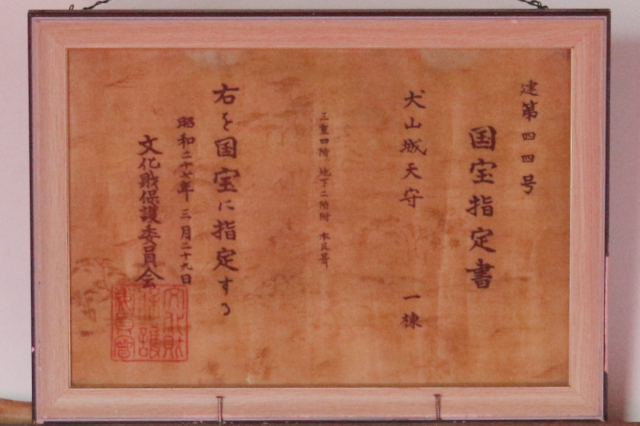 建第四四号
国宝指定書
犬山城天守 一棟
三重四階 地下二階附 本瓦葺
右を国宝に指定する
昭和二十七年三月二十九日
文化財保護委員会
文化財保護委員会